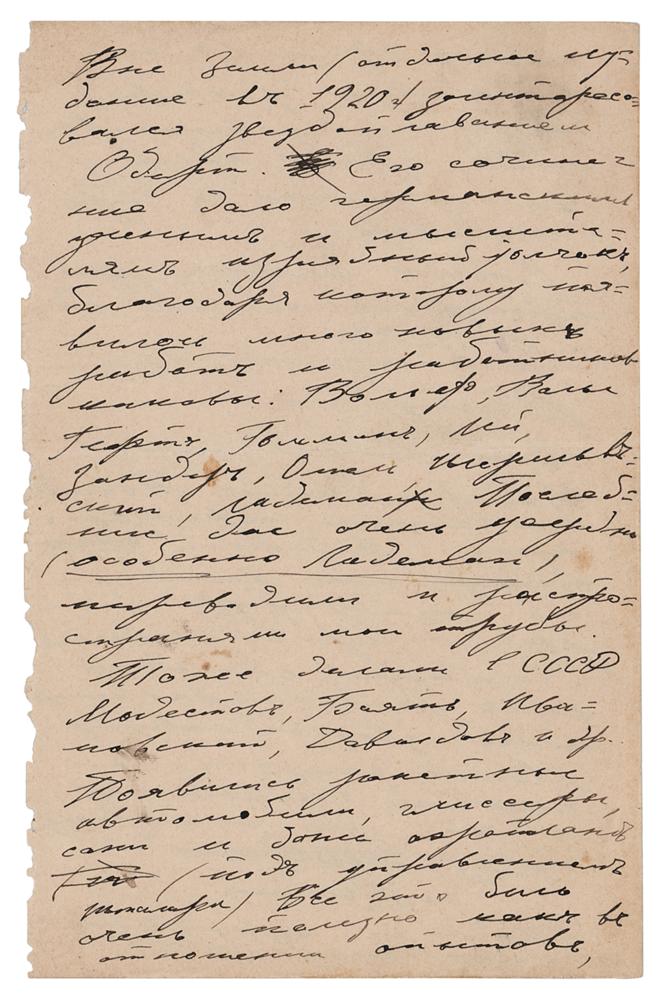 Вне Земли (отдельное из-
дание въ 1920 г.) заинтересо-
вался звездоплаваниемъ
Оберт. Его сочине-
ние дало германскимъ
ученымъ и мыслите-
лямъ изрядный толчокъ,
благодаря которому поя-
вилось много новыхъ
работъ и работников
каковы: Вольф, Валье
Гефтъ, Гоманъ, Лей,
Зандеръ, Опель, Шершев-
ский, Ладеман Послед-
ние два очень усердно
(особенно Ладеман),
переводили и распро-
страняли мои труды.
Тоже делали в СССР
Модестовъ, Бохтъ, Ива-
новский, Давыдовъ и др.
Появились ракетные
автомобили, глиссеры,
сани и даже аэропланъ
(подъ управлениемъ
) Все это было
очень полезно какъ въ
отношении опытовъ,